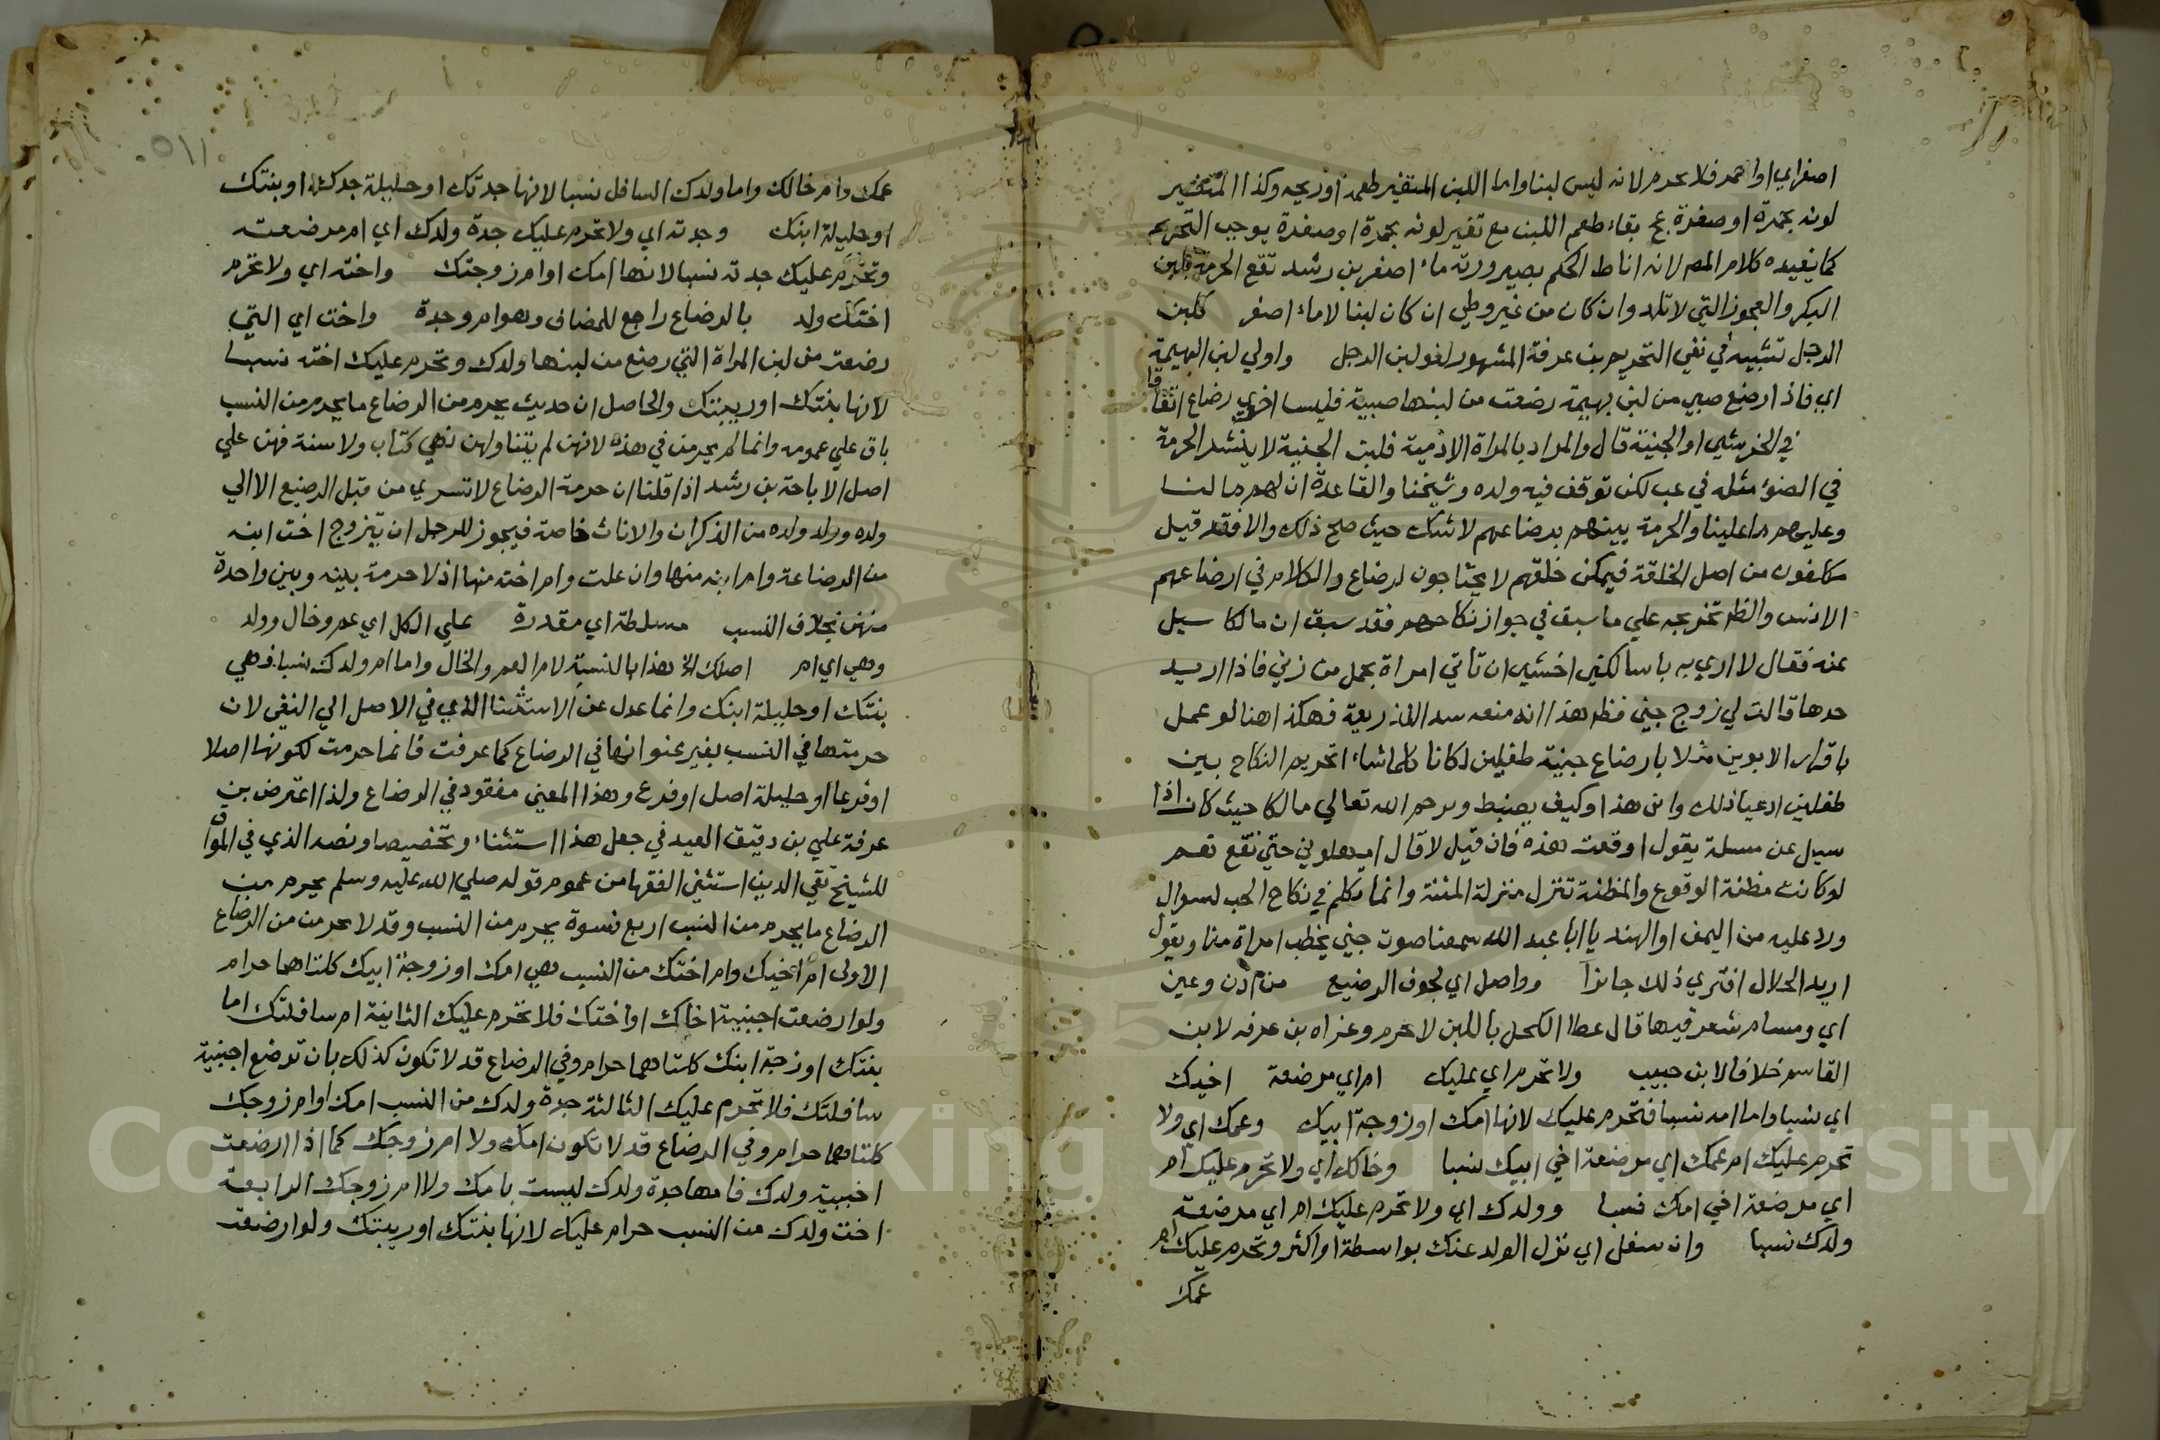 اصفراي او احمر فلا يحرم لانه ليس لبنا واما اللبن المتغير طعمه او ريحه وكذا المتغير
لونه بحمرة او صفرة عج بقاء طعم اللبن مع تغير لونه بحمرة او صفرة يوجب التحريم
كما يفيده كلام المص لانه اناط الحكم بصيرورته ماء اصفر بن رشد تقع الحرمة بلبن
البكر والعجوز التي لا تلد وان كان من غير وطي ان كان لبنا لا ماء اصفر كلبن
الرجل تشبيه في نفي التحريم بن عرفة المشهور لغو لبن الرجل واولي لبن البهيمة
اي فاذا رضع صبي من لبن بهيمة رضعت من لبنها صبية فليسا اخوي رضاع اتفاقا
في الخرشي او الجنية قال والمراد بالمراة الادمية فلبن الجنية لا ينشر الحرمة
في الضوء مثله في عب لكن توقف فيه ولده وشيخنا والقاعدة ان لهم ما لنا
وعليهم ما علينا والحرمة بينهم برضاعهم لا شك حيث صح ذلك والا فقد قيل
مكلفون من اصل الخلقة فيمكن خلقهم لا يحتاجون لرضاع والكلام في ارضاعهم
الانس والظ تخريجه علي ما سبق في جواز نكاحهم فقد سبق ان مالكا سيل
عنه فقال لا اري به باسا لكني اخشي ان تاتي امراة بحمل من زني فاذا اريد
حدها قالت لي زوج جني فظ هذا انه منعه سد اللذريعة فهكذا هنا لو عمل
باقرار الابوين مثلا بارضاع جنية طفلين لكانا كلما شاء اتحريم النكاح بين
طفلين ادعيا ذلك واين هذا وكيف يضبط ورحم الله تعالي مالكا حيث كان اذا
سيل عن مسلة يقول اوقعت هذه فان قيل لا قال امهلوني حتي تقع نعم
لو كانت مظنة الوقوع والمظنة تنزل منزلة المئنة وانما تكلم في نكاح الجن لسوال
ورد عليه من اليمن او الهند يا ابا عبد الله سمعنا صوت جني يخطب امراة منا ويقول
اريد الحلال افتري ذلك جائزا وواصل اي لجوف الرضيع من اذن وعين
اي ومسام شعر فيها قال عطا الكحل باللبن لا يحرم وعزاه بن عرفه لابن
القاسم خلافا لابن حبيب ولا تحرم اي عليك ام اي مرضعة اخيك
اي نسبا واما امه نسبا فتحرم عليك لانها امك او زوجة ابيك وعمك اي ولا
تحرم عليك ام عمك اي مرضعة اخي ابيك نسبا وخالك اي ولا تحرم عليك ام
اي مرضعة اخي امك نسبا وولدك اي ولا تحرم عليك ام اي مرضعة
ولدك نسبا وان سفل اي نزل الولد عنك بواسطة او اكثر وتحرم عليك ام
عمك
٥١١
عمك وام خالك واما ولدك السافل نسبا لانها جدتك او حليلة جدك او بنتك
او حليلة ابنك وجدته اي ولا تحرم عليك جدة ولدك اي ام مرضعته
وتحرم عليك جدته نسبا لانها امك او ام زوجتك واخته اي ولا تحرم
اختك ولد بالرضاع راجع للمضاف وهو ام وجدة واخت اي التي
رضعت من لبن المراة التي رضع من لبنها ولدك وتحرم عليك اخته نسبا
لانها بنتك او ربيبتك والحاصل ان حديث يحرم من الرضاع ما يحرم من النسب
باق علي عمومه وانما لم يحرمن في هذه لانهن لم يتناولهن نهي كتاب ولا سنة فهن علي
اصل الاباحة بن رشد اذا قلنا ان حرمة الرضاع لا تسري من قبل الرضيع الا الي
ولده وولد ولده من الذكران والاناث خاصة فيجوز للرجل ان يتزوج اخت ابنه
من الرضاعة وام ابنه منها وان علت وام اخته منها اذ لا حرمة بينه وبين واحدة
منهن بخلاف النسب مسلطة اي مقدرة علي الكل اي عم وخال وولد
وهي اي ام اصلك الخ هذا بالنسبة لام العم والخال واما ام ولدك نسبا فهي
بنتك او حليلة ابنك وانما عدل عن الاستثنا الذي في الاصل الي النفي لان
حرمتها في النسب بغير عنوانها في الرضاع كما عرفت فانما حرمت لكونها اصلا
او فرعا او حليلة اصل او فرع وهذا المعني مفقود في الرضاع ولذا اعترض بن
عرفة علي بن دقيق العيد في جعل هذا استثناء وتخصيصا ونصه الذي في المواق
للشيخ تقي الدين استثني الفقها من عموم قوله صلي الله عليه وسلم يحرم من
الرضاع ما يحرم من النسب اربع نسوة يحرم من النسب وقد لا يحرمن من الرضاع
الاولى ام اخيك وام اختك من النسب هي امك او زوجة ابيك كلتاهما حرام
ولو ارضعت اجنبية اخاك او اختك فلا تحرم عليك الثانية ام سافلتك اما
بنتك او زوجة ابنك كلتاهما حرام وفي الرضاع قد لا تكون كذلك بان ترضع اجنبية
سافلتك فلا تحرم عليك الثالثة جدة ولدك من النسب امك او ام زوجك
كلتاهما حرام وفي الرضاع قد لا تكون امك ولا ام زوجك كما اذا ارضعت
اجنبية ولدك فامها جدة ولدك ليست بامك ولا ام زوجك الرابعة
اخت ولدك من النسب حرام عليك لانها بنتك او ربيبتك ولو ارضعت
Copyright © King Saud University